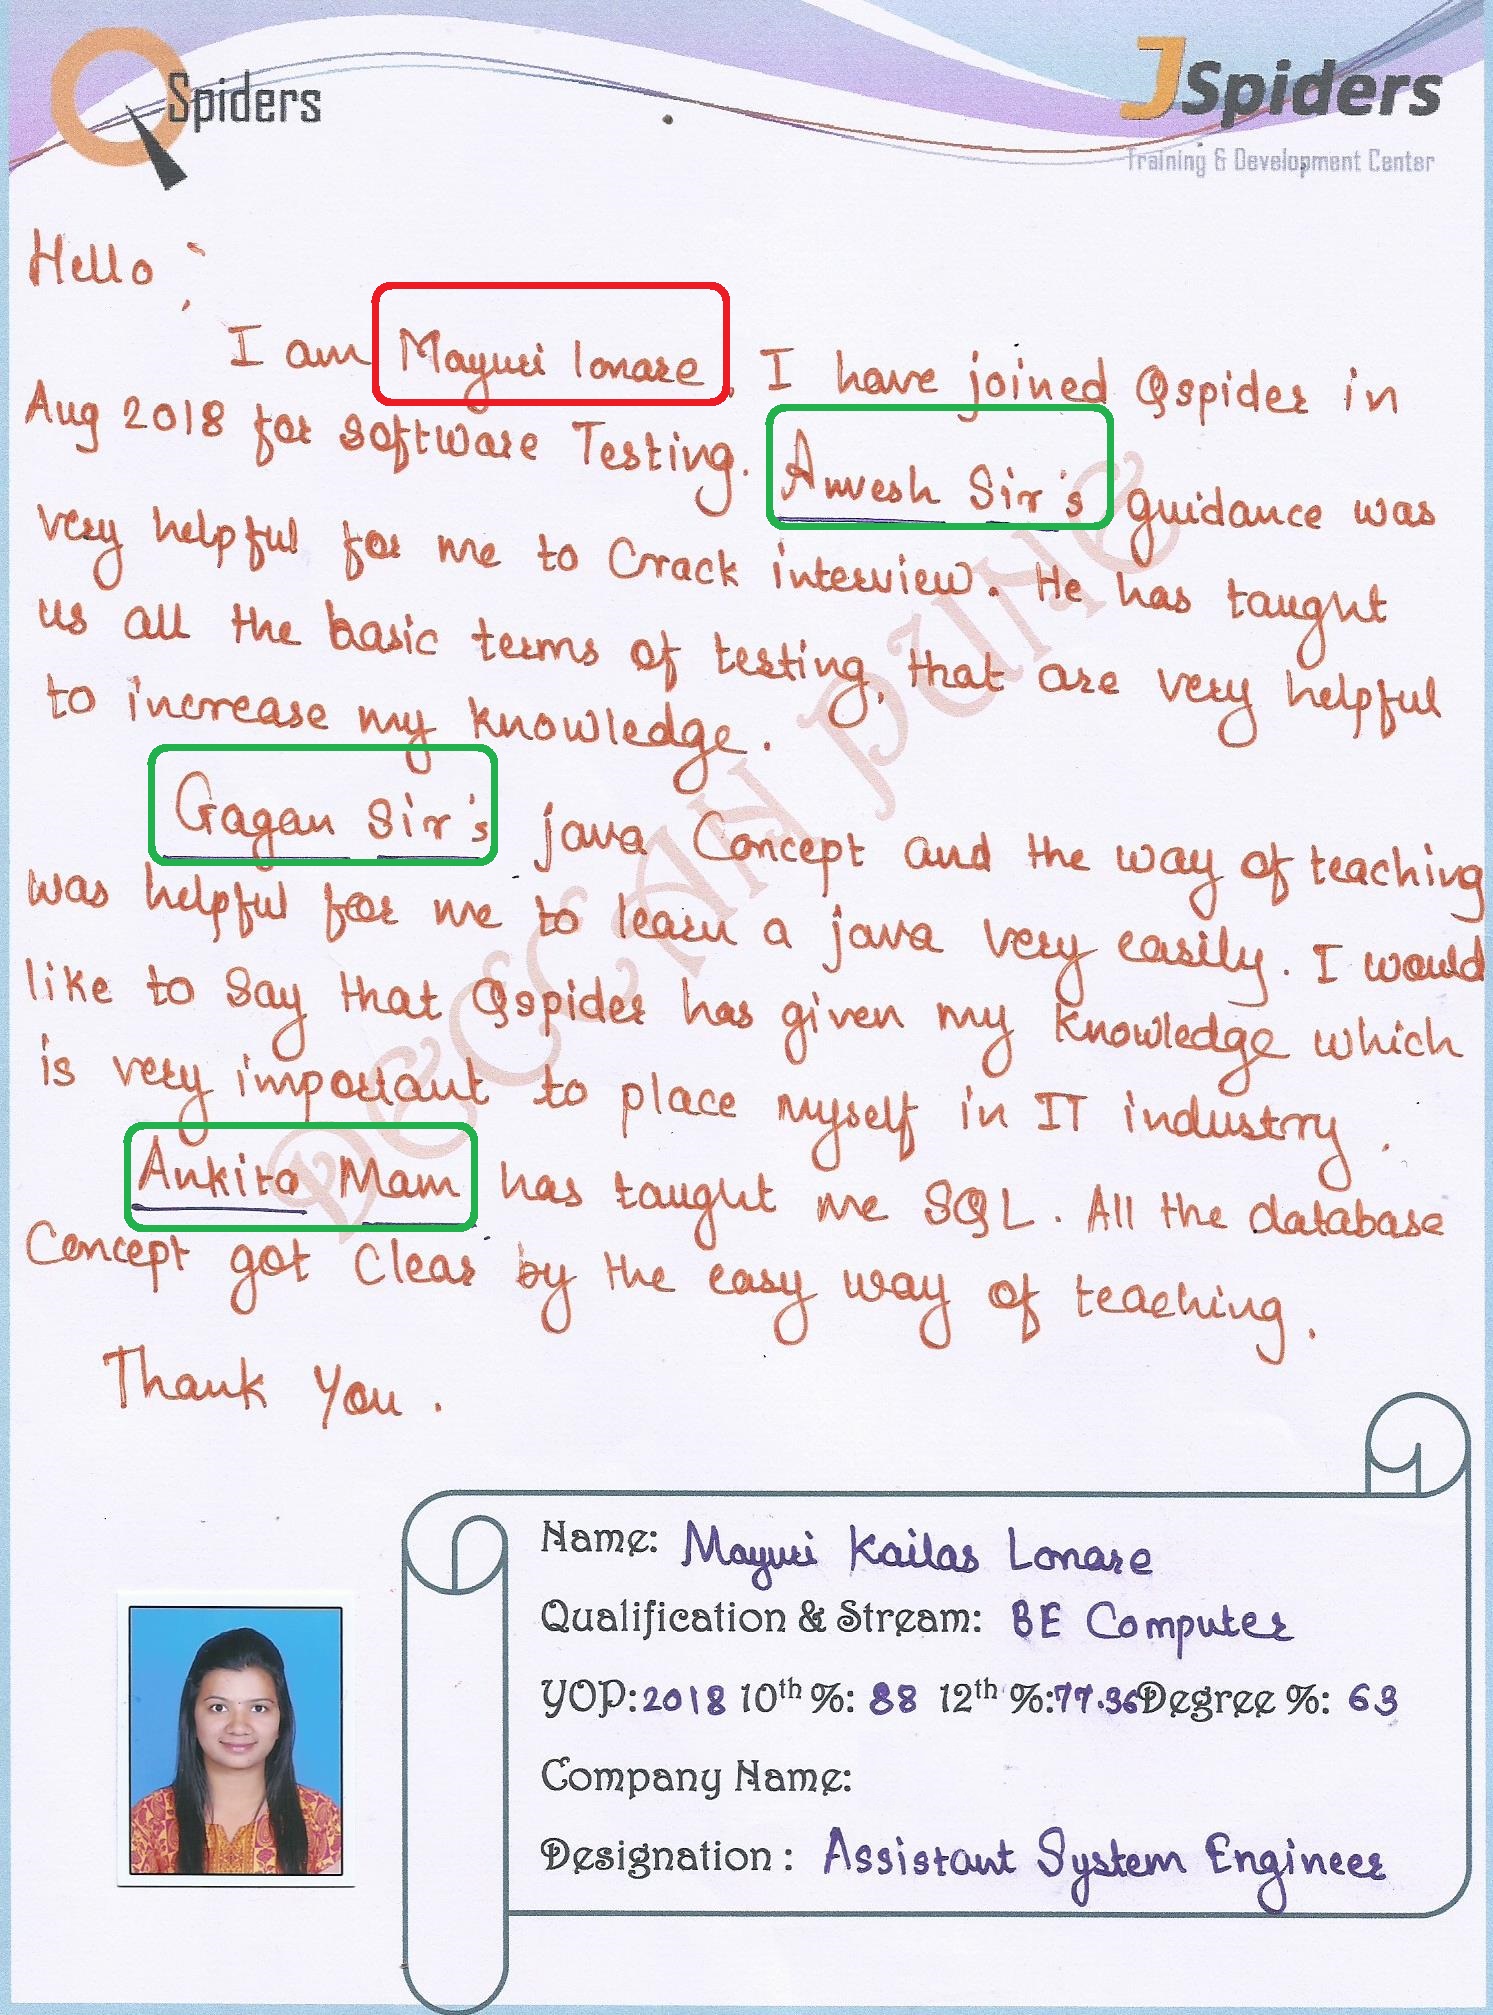 Spiders
JSpiders
Training & Development Center
Hello,
I am Mayuri lonare. I have joined Qspider in
Aug 2018 for Software Testing. Anvesh Sir's guidance was
very helpful for me to Crack interview. He has taught
us all the basic terms of testing, that are very helpful
to increase my knowledge.
Gagan Sir's java Concept and the way of teaching
was helpful for me to learn a java very easily. I would
like to say that Qspider has given my knowledge which
is very important to place myself in IT industry.
Ankita Mam has taught me SQL. All the database
Concept got Clear by the easy way of teaching.
Thank You.
DECCAN PUNE
Name: Mayuri Kailas Lonare
Qualification & Stream: BE Computer
YOP: 2018 10th %: 88 12th %: 77.36 Degree %: 63
Company Name:
Designation : Assistant System Engineer